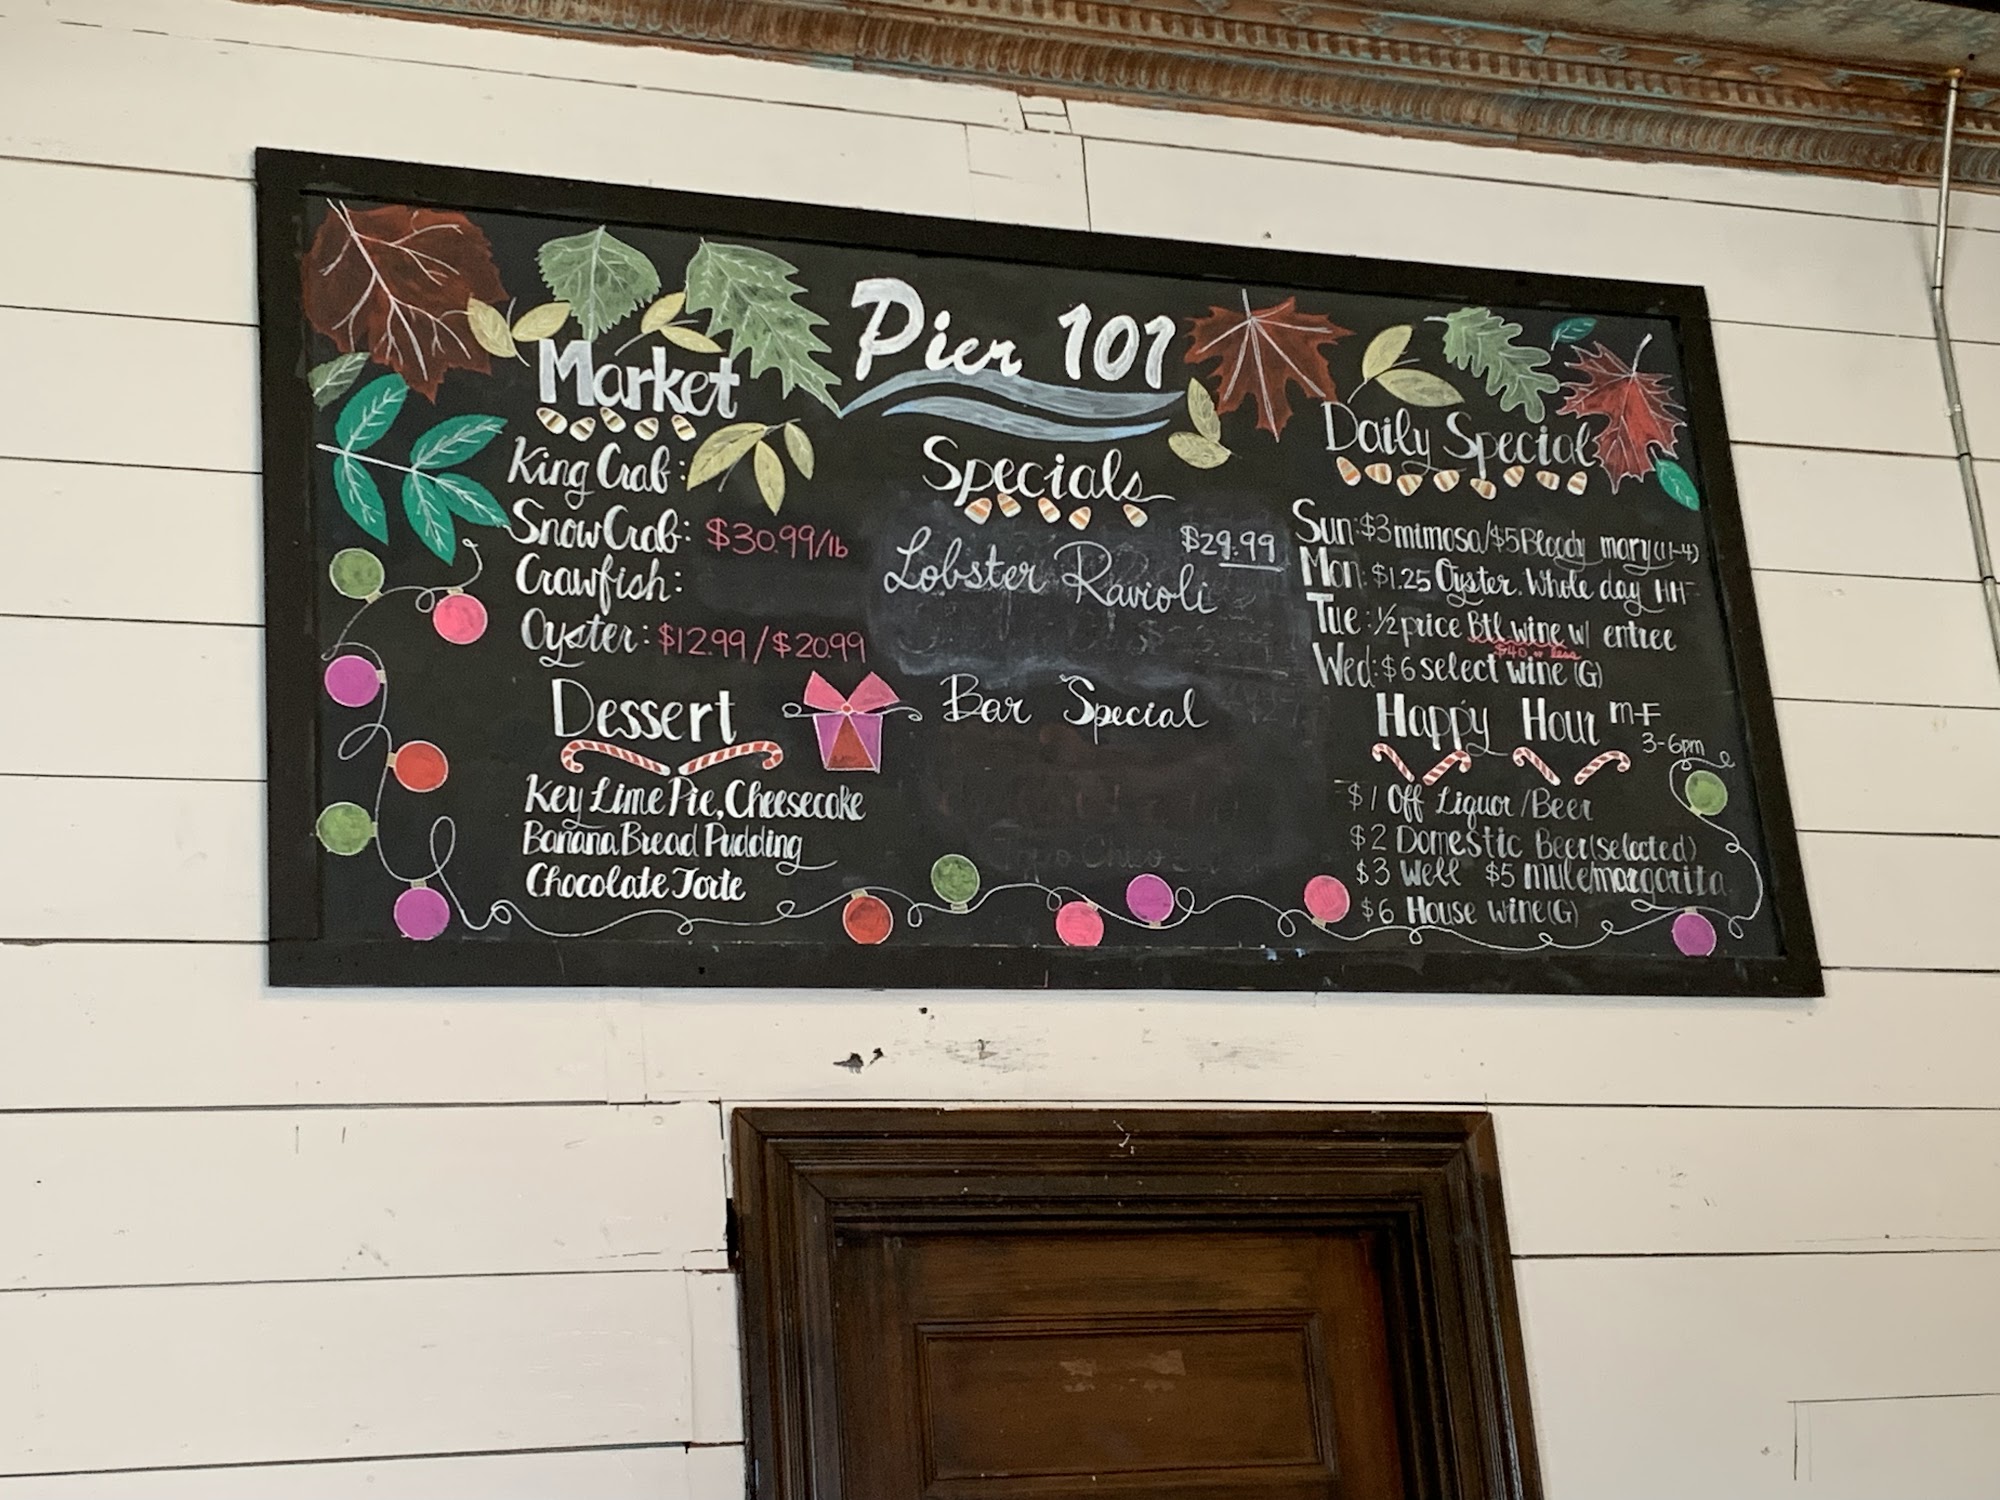 Pier 101
Market
King Crab:
Snow Crab: $30.99/lb
Crawfish:
Oyster: $12.99/$20.99
Dessert
Key Lime Pie, Cheesecake
Banana Bread Pudding
Chocolate Torte
Specials
$29.99
Lobster Ravioli
Bar Special
Daily Special
Sun: $3 mimosa/$5 Bloody mary (11-4)
Mon: $1.25 Oyster. Whole day HH
Tue: ½ price Btl wine w/ entree
$40 or less
Wed: $6 select wine (G)
Happy Hour M-F
3-6pm
$1 Off Liquor/Beer
$2 Domestic Beer (selected)
$3 Well $5 mule/margarita
$6 House wine (G)